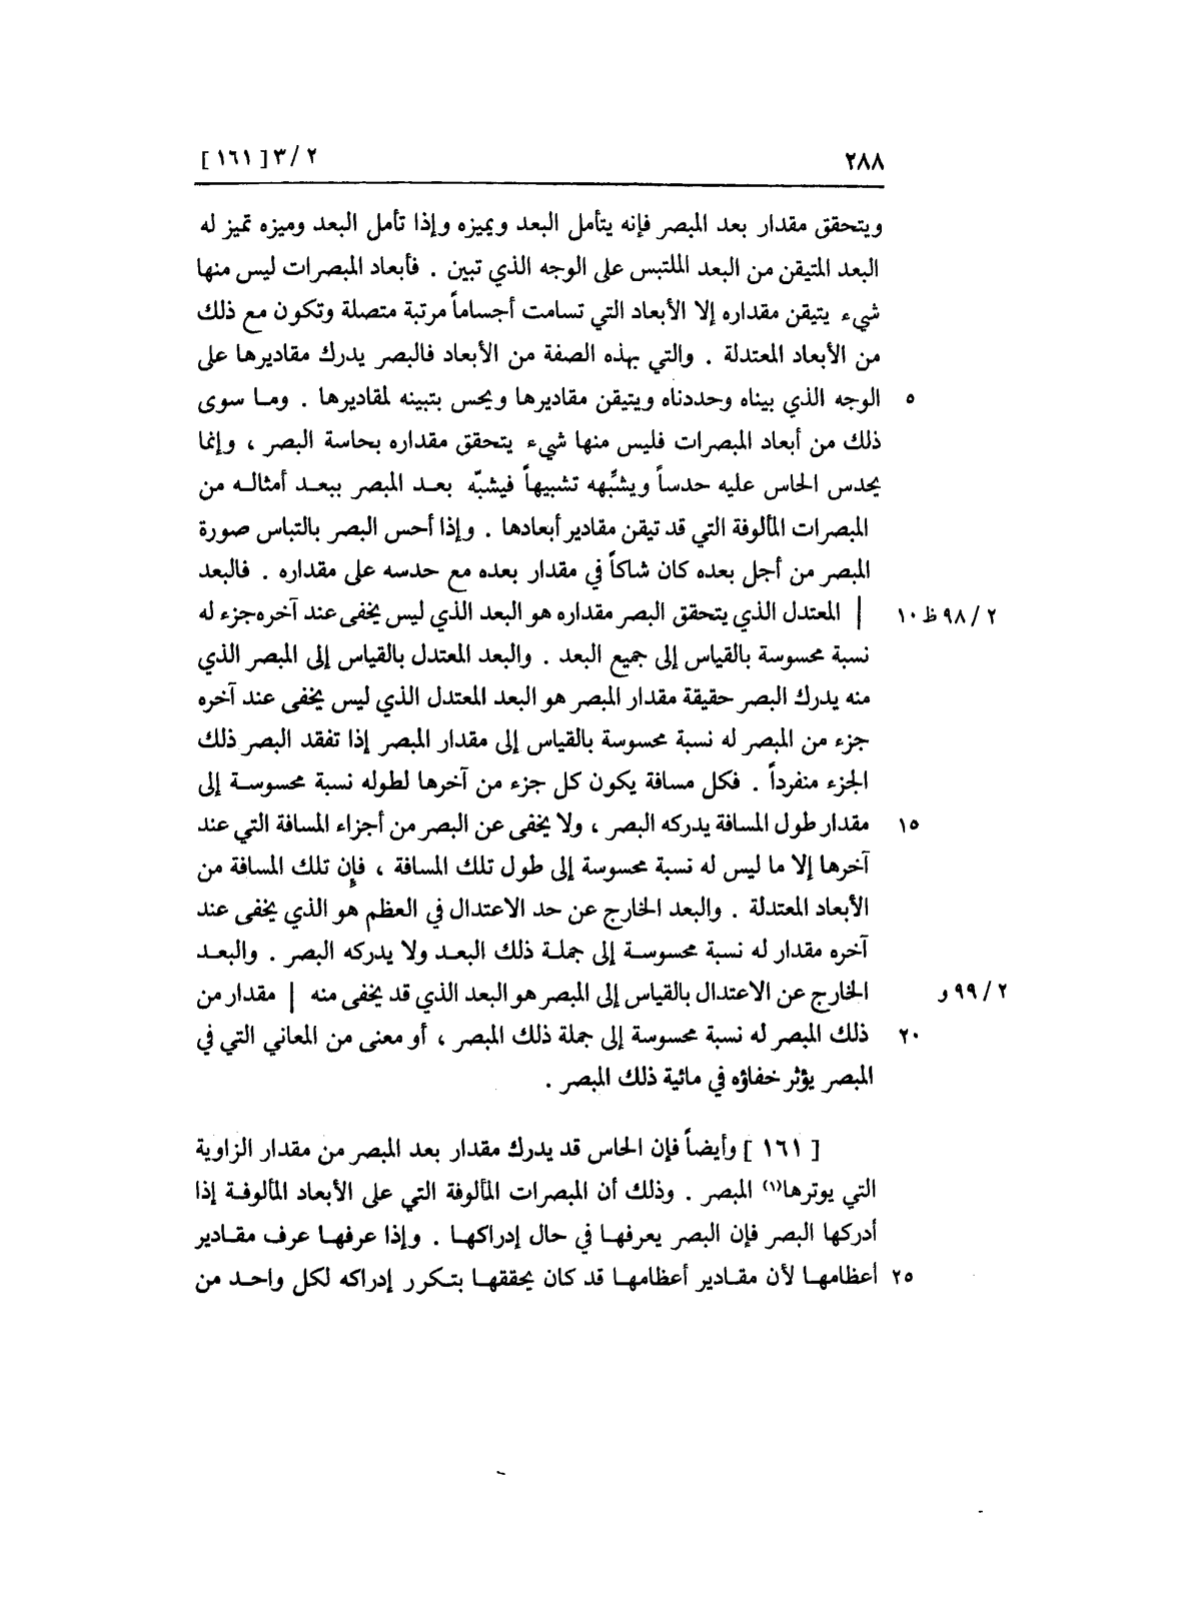 ٢٨٨ ٢ /٣[ ١٦١ ]
ويتحقق مقدار بعد المبصر فإنه يتأمل البعد ويميزه وإذا تأمل البعد وميزه تميز له
البعد المتيقن من البعد الملتبس على الوجه الذي تبين . فأبعاد المبصرات ليس منها
شيء يتيقن مقداره إلا الأبعاد التي تسامت أجساماً مرتبة متصلة وتكون مع ذلك
من الأبعاد المعتدلة . والتي بهذه الصفة من الأبعاد فالبصر يدرك مقاديرها على
٥ الوجه الذي بيناه وحددناه ويتيقن مقاديرها ويحس بتبينه لمقاديرها . وما سوى
ذلك من أبعاد المبصرات فليس منها شيء يتحقق مقداره بحاسة البصر ، وإنما
يحدس الحاس عليه حدساً ويشبِّهه تشبيهاً فيشبّه بعد المبصر ببعد أمثاله من
المبصرات المألوفة التي قد تيقن مقادير أبعادها . وإذا أحس البصر بالتباس صورة
المبصر من أجل بعده كان شاكاً في مقدار بعده مع حدسه على مقداره . فالبعد
٢ /٩٨ ظ ١٠ | المعتدل الذي يتحقق البصر مقداره هو البعد الذي ليس يخفى عند آخره جزء له
نسبة محسوسة بالقياس إلى جميع البعد . والبعد المعتدل بالقياس إلى المبصر الذي
منه يدرك البصر حقيقة مقدار المبصر هو البعد المعتدل الذي ليس يخفى عند آخره
جزء من المبصر له نسبة محسوسة بالقياس إلى مقدار المبصر إذا تفقد البصر ذلك
الجزء منفرداً . فكل مسافة يكون كل جزء من آخرها لطوله نسبة محسوسة إلى
١٥ مقدار طول المسافة يدركه البصر ، ولا يخفى عن البصر من أجزاء المسافة التي عند
آخرها إلا ما ليس له نسبة محسوسة إلى طول تلك المسافة ، فإن تلك المسافة من
الأبعاد المعتدلة . والبعد الخارج عن حد الاعتدال في العظم هو الذي يخفى عند
آخره مقدار له نسبة محسوسة إلى جملة ذلك البعد ولا يدركه البصر . والبعد
٢ /٩٩ و الخارج عن الاعتدال بالقياس إلى المبصر هو البعد الذي قد يخفى منه | مقدار من
٢٠ ذلك المبصر له نسبة محسوسة إلى جملة ذلك المبصر ، أو معنى من المعاني التي في
المبصر يؤثر خفاؤه في مائية ذلك المبصر .
[ ١٦١ ] وأيضاً فإن الحاس قد يدرك مقدار بعد المبصر من مقدار الزاوية
التي يوترها(١) المبصر . وذلك أن المبصرات المألوفة التي على الأبعاد المألوفة إذا
أدركها البصر فإن البصر يعرفها في حال إدراكها . وإذا عرفها عرف مقادير
٢٥ أعظامها لأن مقادير أعظامها قد كان يحققها بتكرر إدراكه لكل واحد من